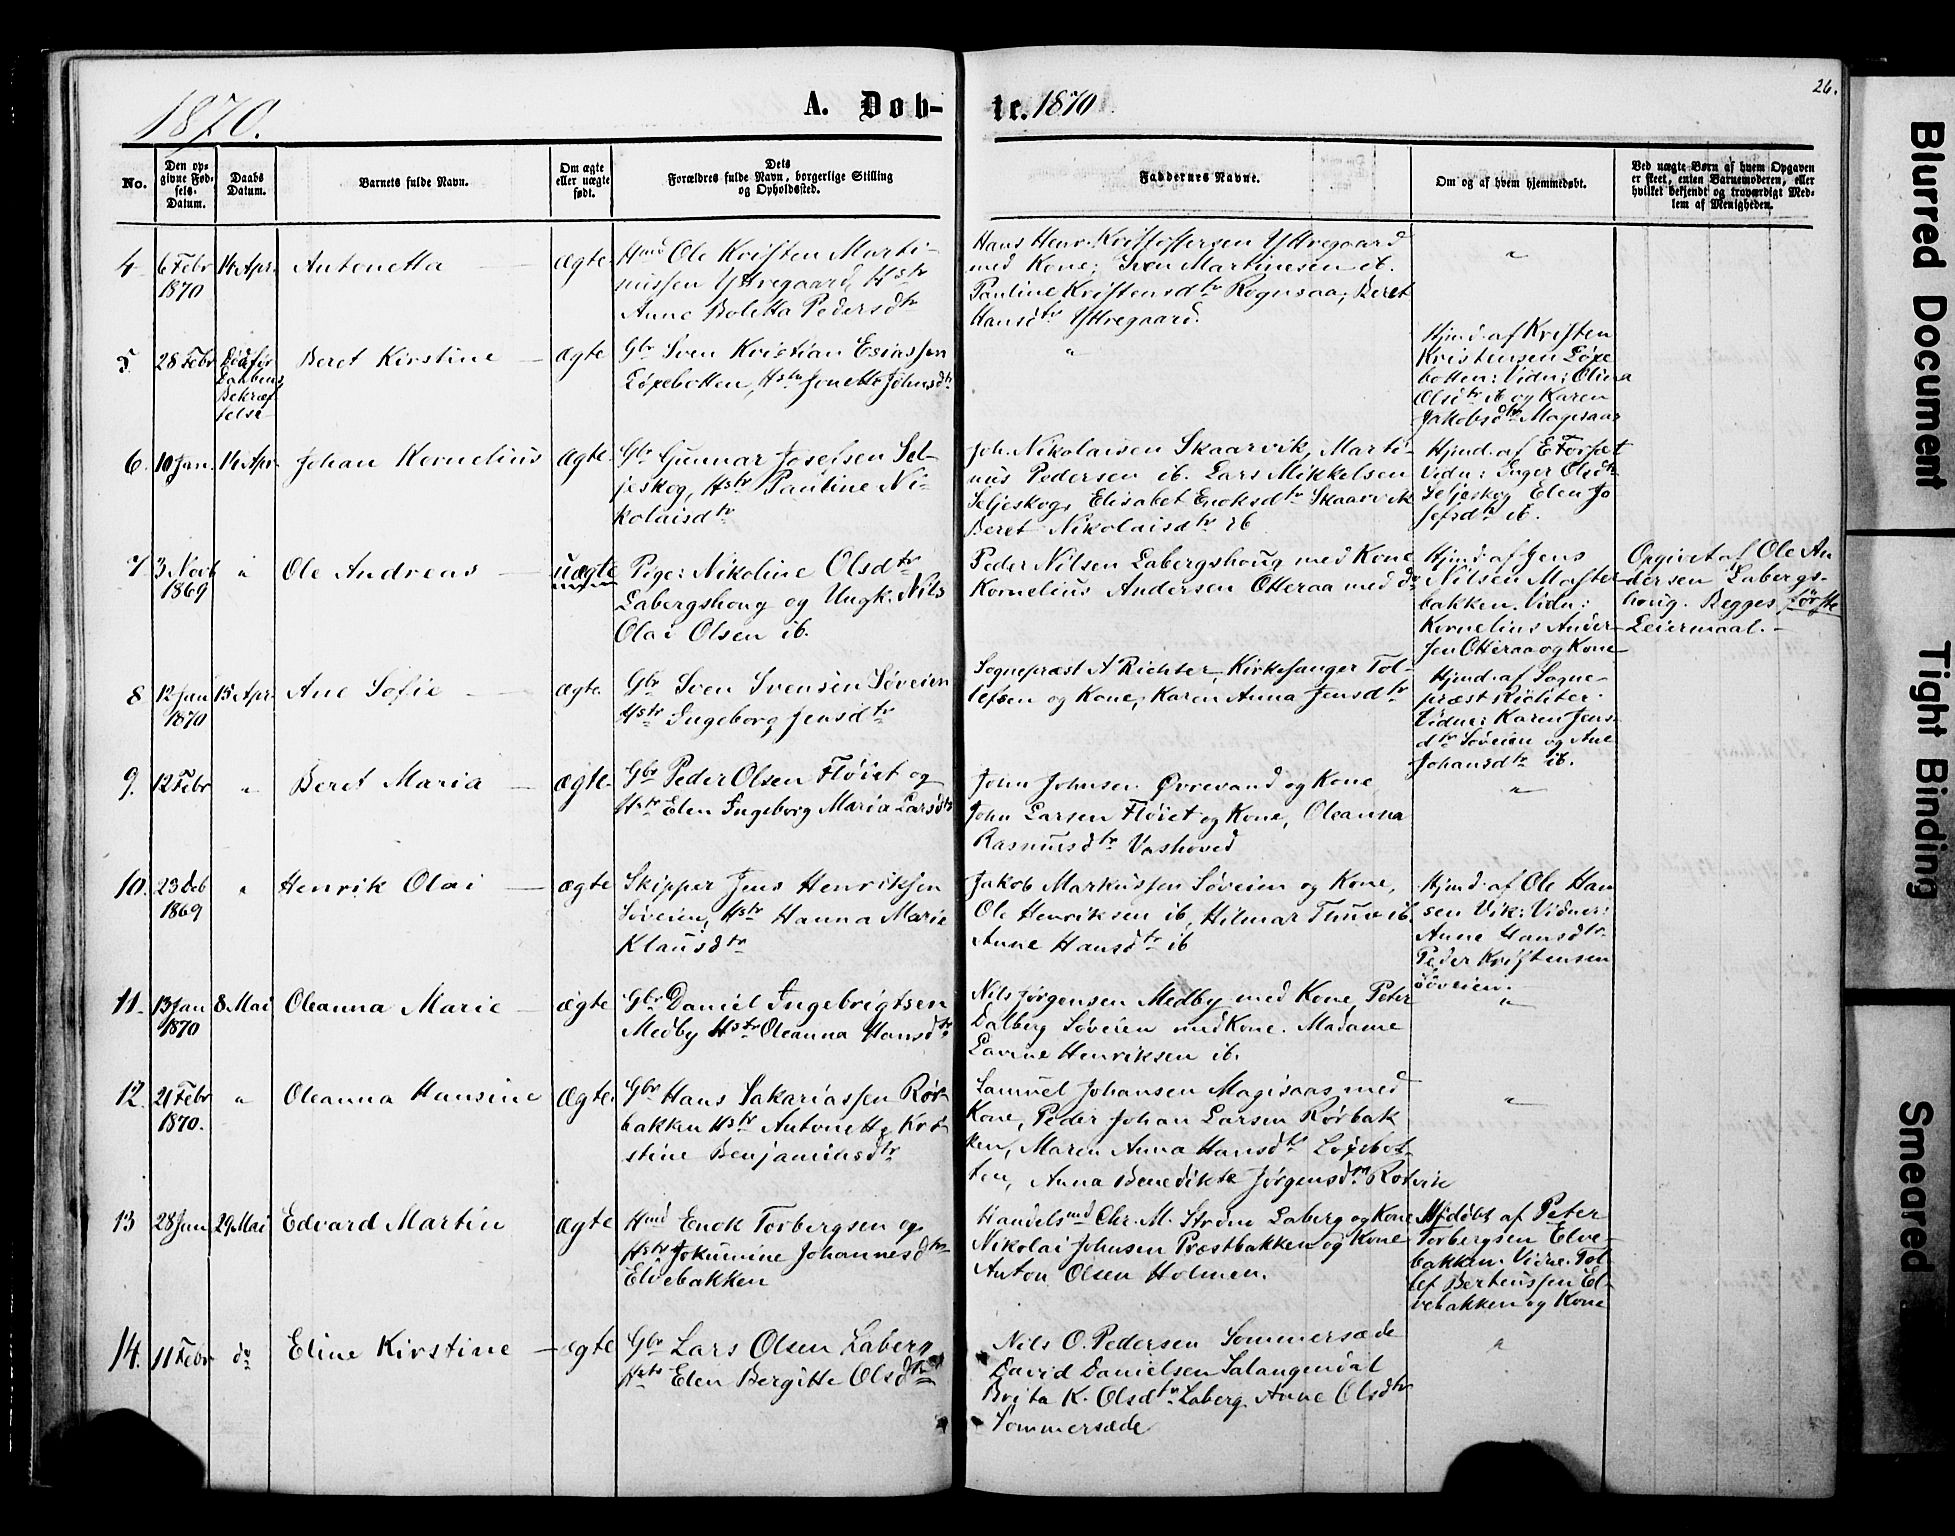 1870.
A. Døb-
te. 1870
26.
No.
Den op-
givne Fød-
sels-
Datum.
Daabs
Datum.
Barnets fulde Navn.
Om ægte
eller uægte
født.
Dets
Forældres fulde Navn, borgerlige Stilling
og Opholdssted.
Faddernes Navne.
Om og af hvem hjemmedøbt.
Ved uægte Børn af hvem Opgaven
er skeet, enten Barnemoderen, eller
hvilket bekjendt og troværdigt Med-
lem af Menigheden.
4
6 Febr
1870
14 Apr.
Antonetta
Ægte
Hmd Ole Kristen Marti-
nussen Yttregaard, Hstr
Anne Boletta Pedersdtr
Hans Henr. Kristoffersen Yttregaard
med Kone; Sven Martinesen ib.
Pauline Kristensdtr Rognsaa; Beret
Hansdtr Yttregaard.
"
5
28 Febr
Død før
Daabens
Bekræf-
telse
Beret Kirstine
ægte
Gbr Sven Kristian Esiassen
Løxebotten, Hstr Jonetta Johnsdtr
"
Hjmd. af Kristen
Kristensen Løxe
botten: Vidn: Olina
Olsdtr ib og Karen
Jakobsdtr Magisaas
6.
10 Jan.
14 Apr
Johan Kornelius
Ægte
Gbr Gunnar Josefsen Sel-
jeskog, Hstr Pauline Ni-
kolaisdtr
Joh. Nikolaisen Skaarvik, Marti-
nus Pedersen ib. Lars Mikkelsen
Seljeskog, Elisabet Enoksdtr Skaarvik
Beret Nikolaisdtr ib
Hjmd. af E Torset
Vidn: Inger Olsdtr
Seljeskog Elen Jo
sefsdtr ib.
7
3 Novb
1869
"
Ole Andreas
uægte
Pige: Nikoline Olsdtr
Labergshoug og Ungk. Nils
Olai Olsen ib.
Peder Nilsen Labergshoug med Kone
Kornelius Andersen Otteraa med do
Hjmd. af Jens
Nilsen Moster-
bakken. Vidn:
Kornelius Ander-
sen Otteraa og Kone
Opgivet af Ole An
dersen Labergs-
houg. Begges første
Leiermaal.
8
12 Jan
1870
15 Apr.
Ane Sofie
ægte.
Gbr Sven Svensen Søveien
Hstr Ingeborg Jensdtr
Sognepræst A Richter, Kirkesanger Tol-
lefsen og Kone, Karen Anna Jensdtr
Hjmd. af Sogne-
præst Richter.
Vidne: Karen Jens-
dtr Søveien og Ane
Johansdtr ib.
9.
12 Febr
"
Beret Maria
ægte.
Gbr Peder Olsen Fløiet og
Hstr Elen Ingeborg Maria Larsdtr
John Johnsen Øvrevand og Kone
John Larsen Fløiet og Kone, Oleanna
Rasmusdtr Vashoved
"
10.
23 Deb
1869
"
Henrik Olai
ægte
Skipper Jens Henriksen
Søveien, Hstr Hanna Marie
Klausdtr
Jakob Markussen Søveien og Kone,
Ole Henriksen ib, Hilmar Thuv ib.
Anne Hansdtr ib
Hjmd. af Ole Han
sen Vik: Vidner:
Anne Hansdtr
Peder Kristensen
Søveien.
11.
13 Jan
1870
8 Mai
Oleanna Marie
ægte
Gbr Daniel Ingebrigtsen
Medby Hstr Oleanna Hansdtr
Nils Jørgensen Medby med Kone, Peter
Dalberg Søveien med Kone. Madame
Lavine Henriksen ib.
"
12.
21 Febr
1870.
"
Oleanna Hansine
Ægte.
Gbr Hans Sakariassen Rør-
bakken Hstr Antonette Kri-
stine Benjaminsdtr
Samuel Johansen Magisaas med
Kone, Peder Johan Larsen Rørbak
ken, Maren Anna Hansdtr Løxebot-
ten, Anna Benedikte Jørgensdtr Rotvik
"
13
28 Jan
29 Mai
Edvard Martin
ægte
Hmd Enok Torbergsen og
Hstr Jokumine Johannesdtr
Elvebakken
Handelsmd Chr. M. Strøm Laberg og Kone
Nikolai Johnsen Præstbakken og Kone
Anton Olsen Holmen.
Hjdøbt af Peter
Torbergsen Elve-
bakken. Vidne. Tol-
lef Bertenssen El-
vebakken og Kone
14.
11 Febr
do
Eline Kirstine
ægte
Gbr Lars Olsen Laberg
Hstr Elen Bergitte Olsdtr
Nils O. Pedersen Sommersæde
David Danielsen Salangsdal
Brita K. Olsdtr Laberg Anne Olsdtr
Sommersæde
"
Blurred Document
Tight Binding
Smeared